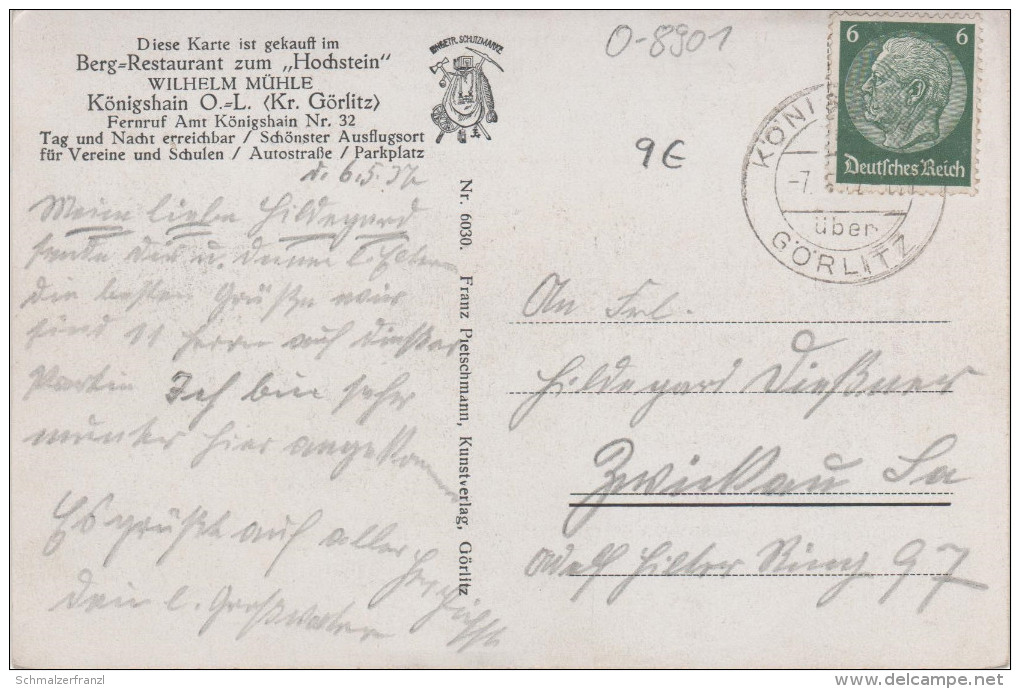 Diese Karte ist gekauft im
Berg=Restaurant zum „Hochstein"
WILHELM MÜHLE
Königshain O.=L. (Kr. Görlitz)
Fernruf Amt Königshain Nr. 32
Tag und Nacht erreichbar / Schönster Ausflugsort
für Vereine und Schulen / Autostraße / Parkplatz
EINGETR. SCHUTZMARKE
O-8901
9€
6 6
Deutsches Reich
KÖNI
-7.
über
GÖRLITZ
d. 6.5.37
Meine liebe Hildegard
sende Dir u. deinen l. Eltern
die besten Grüße wir
sind 11 Herrn auf dieser
Partie Ich bin sehr
munter hier angekom
Es grüßt auf aller
Dein l. Großvater
Nr. 6030. Franz Pietschmann, Kunstverlag, Görlitz
An Frl.
Hildegard Dießner
Zwickau Sa
Adolf Hitler Ring 97
Schmalzerfranzl
delcampe.net